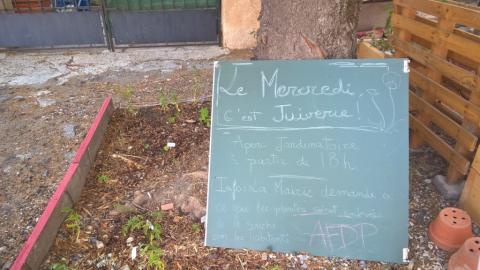 Le Mercredi,
C'est Juiverie!
Apéro Jardinatoire
à partir de 18h
Infos: La Mairie demande à
ce que les plantes soient
AFDP